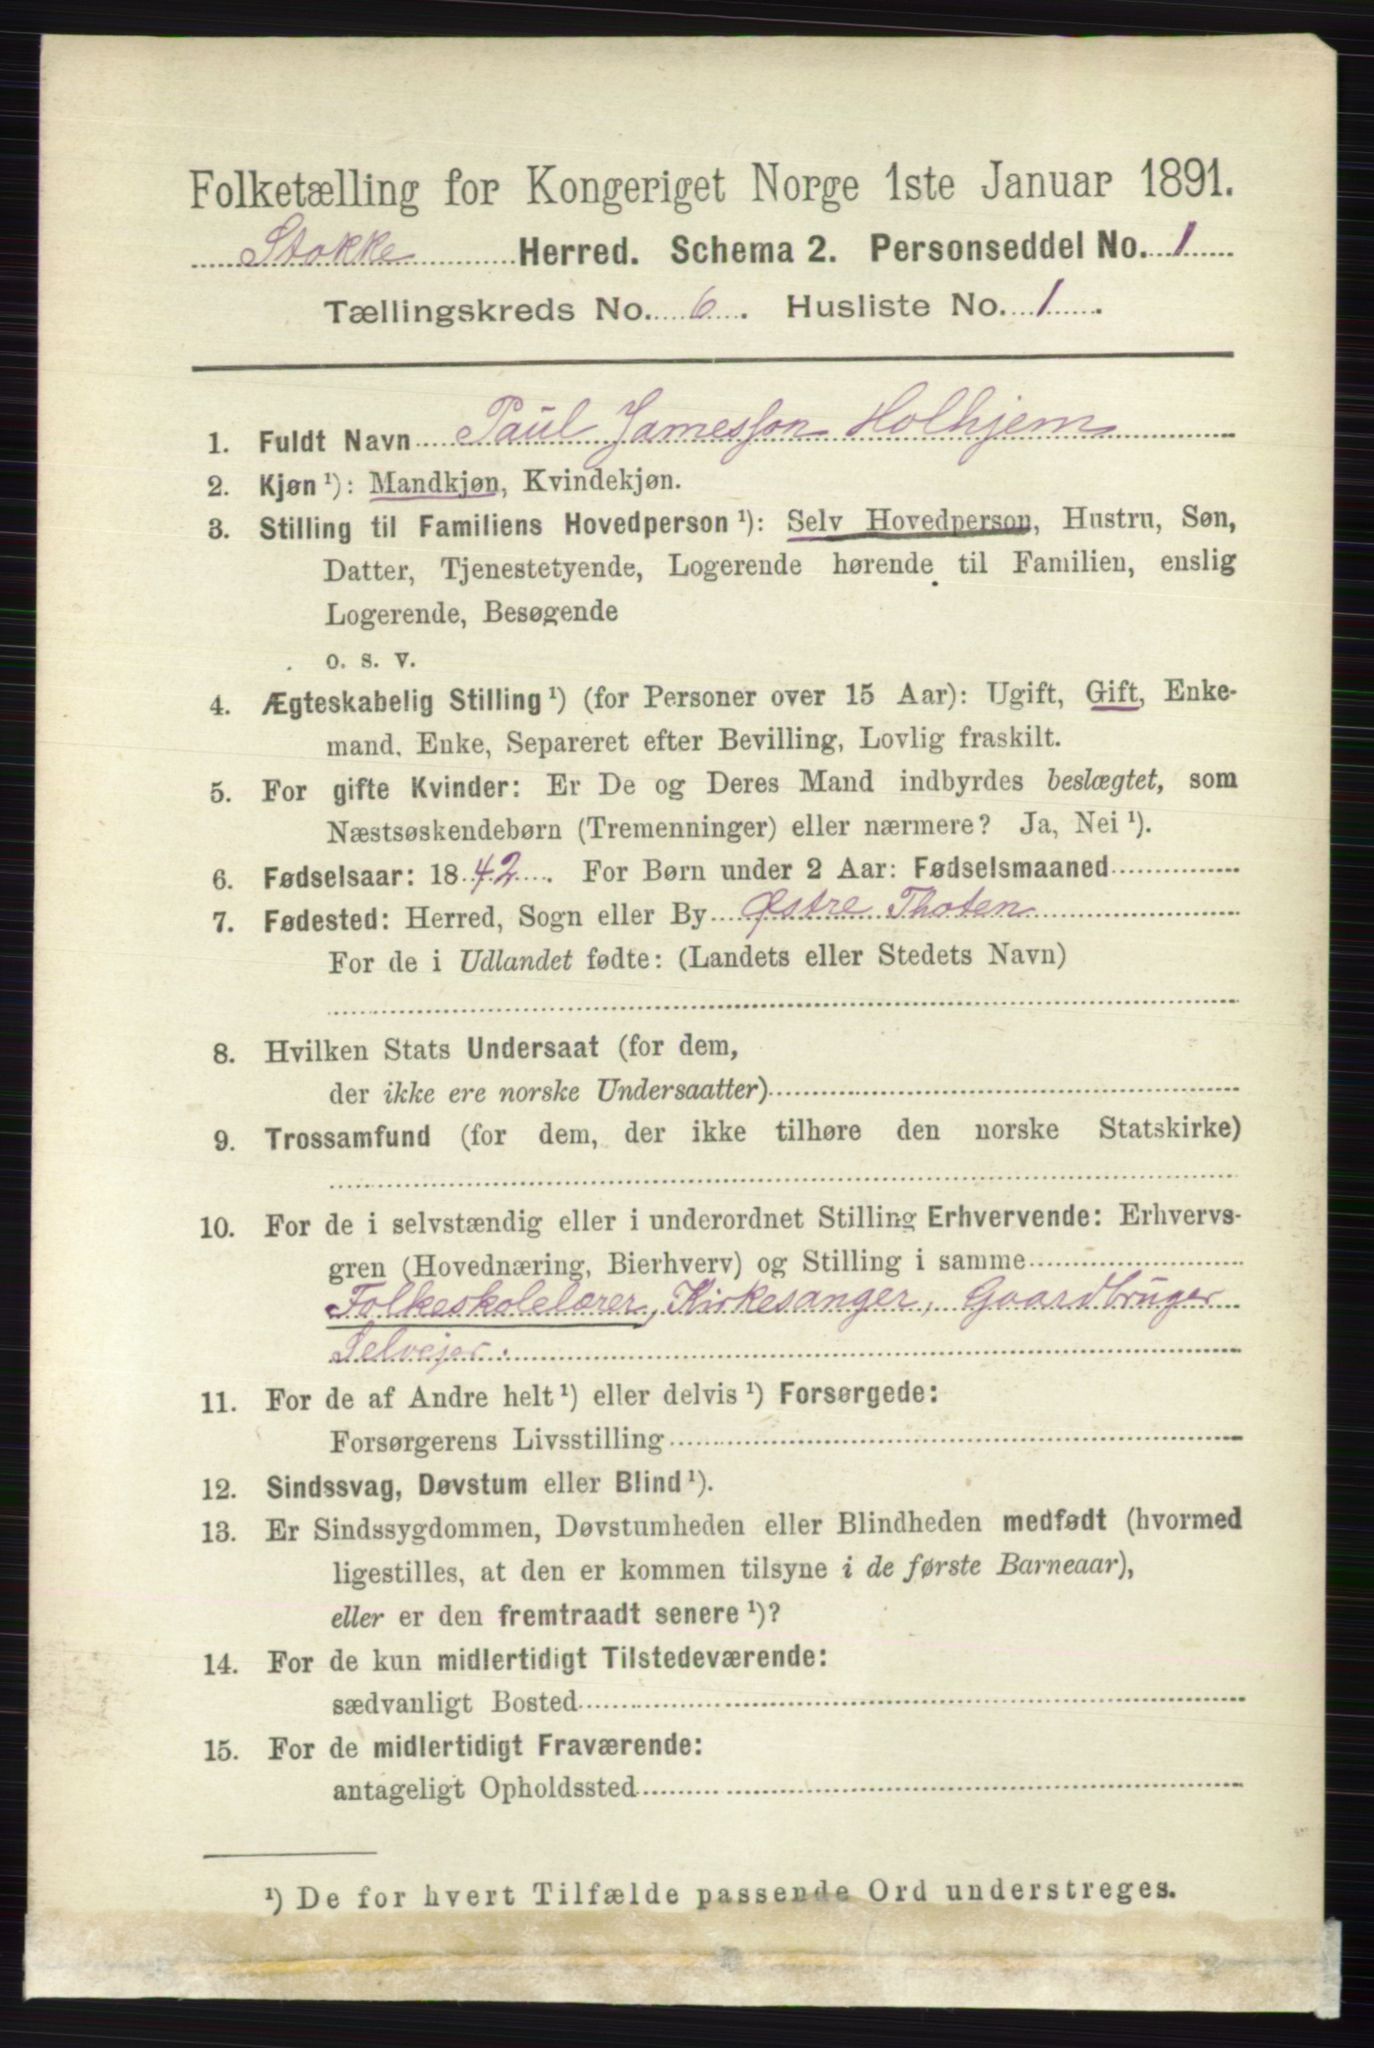 Folketælling for Kongeriget Norge 1ste Januar 1891.
Stokke Herred. Schema 2. Personseddel No. 1
Tællingskreds No. 6. Husliste No. 1.
1. Fuldt Navn Paul Jamesson Holhjem
2. Kjøn ¹): Mandkjøn, Kvindekjøn.
3. Stilling til Familiens Hovedperson ¹): Selv Hovedperson, Hustru, Søn,
Datter, Tjenestetyende, Logerende hørende til Familien, enslig
Logerende, Besøgende
o. s. v.
4. Ægteskabelig Stilling ¹) (for Personer over 15 Aar): Ugift, Gift, Enke-
mand, Enke, Separeret efter Bevilling, Lovlig fraskilt.
5. For gifte Kvinder: Er De og Deres Mand indbyrdes beslægtet, som
Næstsøskendebørn (Tremenninger) eller nærmere? Ja, Nei ¹).
6. Fødselsaar: 1842. For Børn under 2 Aar: Fødselsmaaned
7. Fødested: Herred, Sogn eller By Østre Thoten
For de i Udlandet fødte: (Landets eller Stedets Navn)
8. Hvilken Stats Undersaat (for dem,
der ikke ere norske Undersaatter)
9. Trossamfund (for dem, der ikke tilhøre den norske Statskirke)
10. For de i selvstændig eller i underordnet Stilling Erhvervende: Erhvervs-
gren (Hovednæring, Bierhverv) og Stilling i samme
Folkeskolelærer, Kirkesanger, Gaardbruger
Selvejer.
11. For de af Andre helt ¹) eller delvis ¹) Forsørgede:
Forsørgerens Livsstilling
12. Sindssvag, Døvstum eller Blind ¹).
13. Er Sindssygdommen, Døvstumheden eller Blindheden medfødt (hvormed
ligestilles, at den er kommen tilsyne i de første Barneaar),
eller er den fremtraadt senere ¹)?
14. For de kun midlertidigt Tilstedeværende:
sædvanligt Bosted
15. For de midlertidigt Fraværende:
antageligt Opholdssted
¹) De for hvert Tilfælde passende Ord understreges.